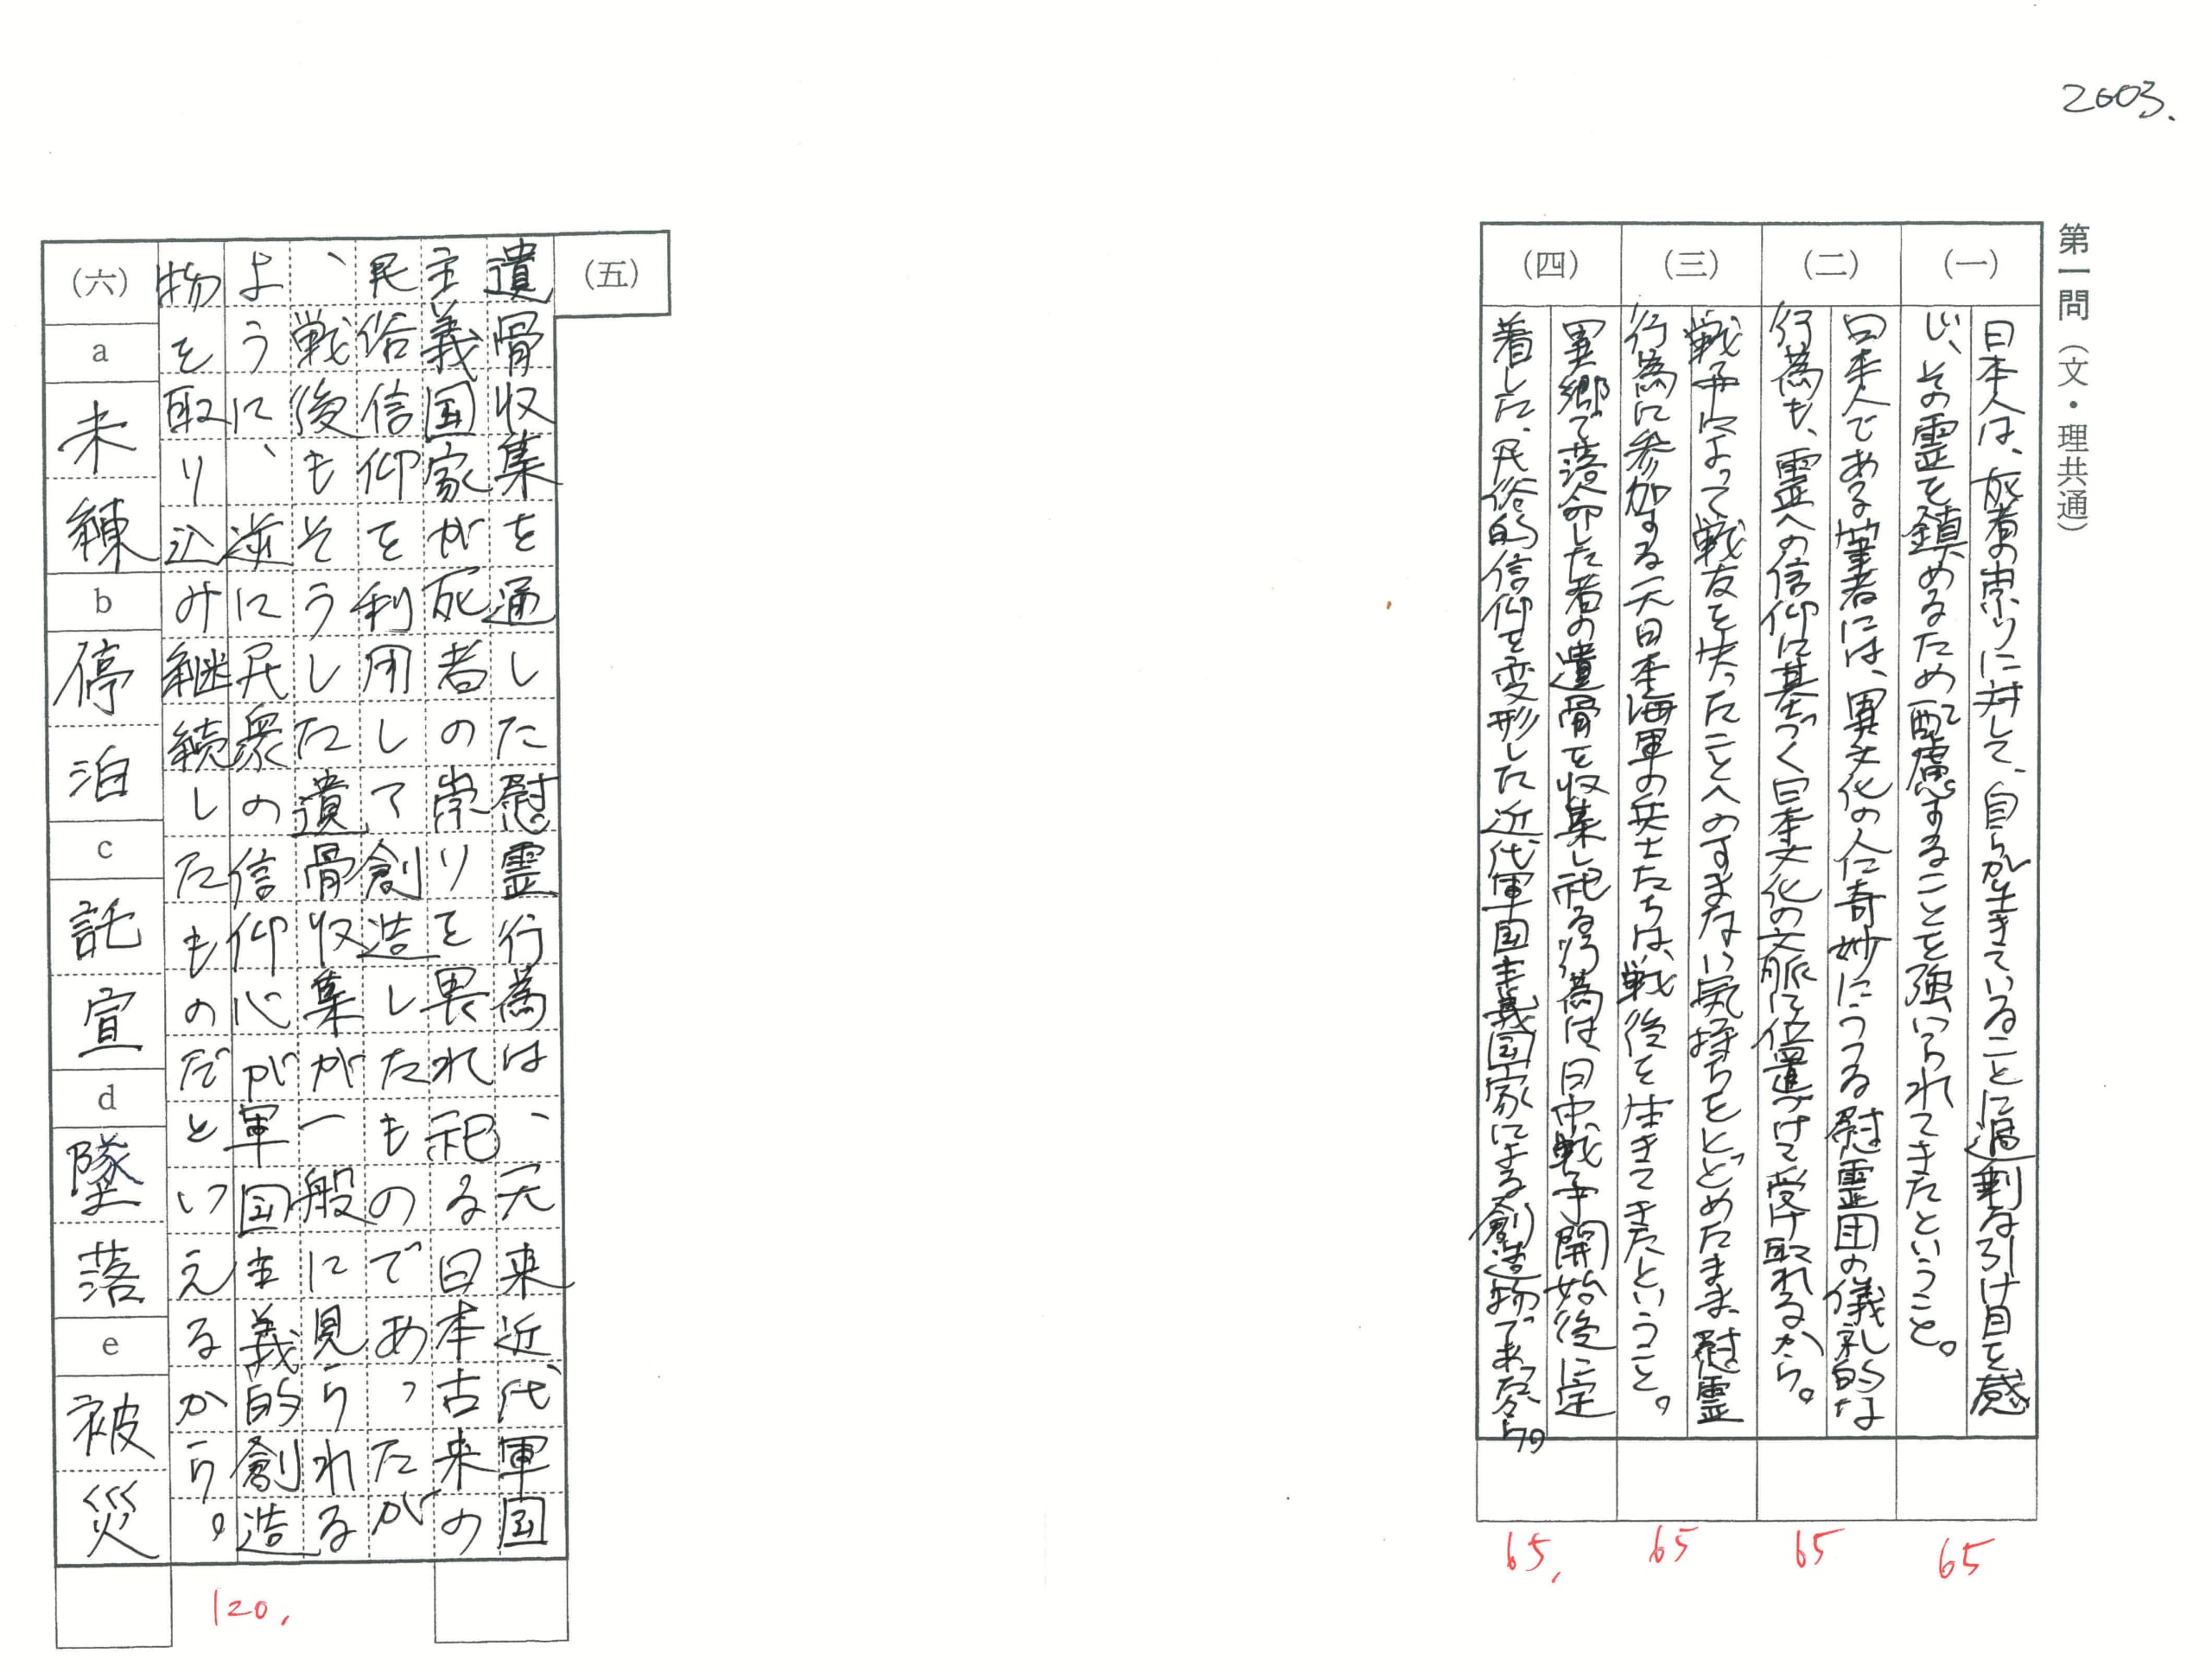 2003.
第一問（文・理共通）
(一)
日本人は、死者の祟りに対して、自らが生きていることに過剰な引け目を感
じ、その霊を鎮めるため配慮することを強いられてきたということ。
(二)
日本人である筆者には、異文化の人に奇妙にうつる慰霊団の儀礼的な
行為も、霊への信仰に基づく日本文化の文脈に位置づけて受け取れるから。
(三)
戦争によって戦友を失ったことへのすまない気持ちをとどめたまま、慰霊
行為に参加する元日本海軍の兵士たちは、戦後を生きてきたということ。
(四)
異郷で落命した者の遺骨を収集し祀る行為は、日中戦争開始後に定
着した、民俗的信仰を変形した近代軍国主義国家による創造物であったから。
65
65
65
65.
(五)
遺骨収集を通した慰霊行為は、元来近代軍国
主義国家が死者の祟りを畏れ祀る日本古来の
民俗信仰を利用して創造したものであったが
、戦後もそうした遺骨収集が一般に見られる
ように、逆に民衆の信仰心が軍国主義的創造
物を取り込み継続したものだといえるから。
120.
(六)
a
未練
b
停泊
c
託宣
d
墜落
e
被災